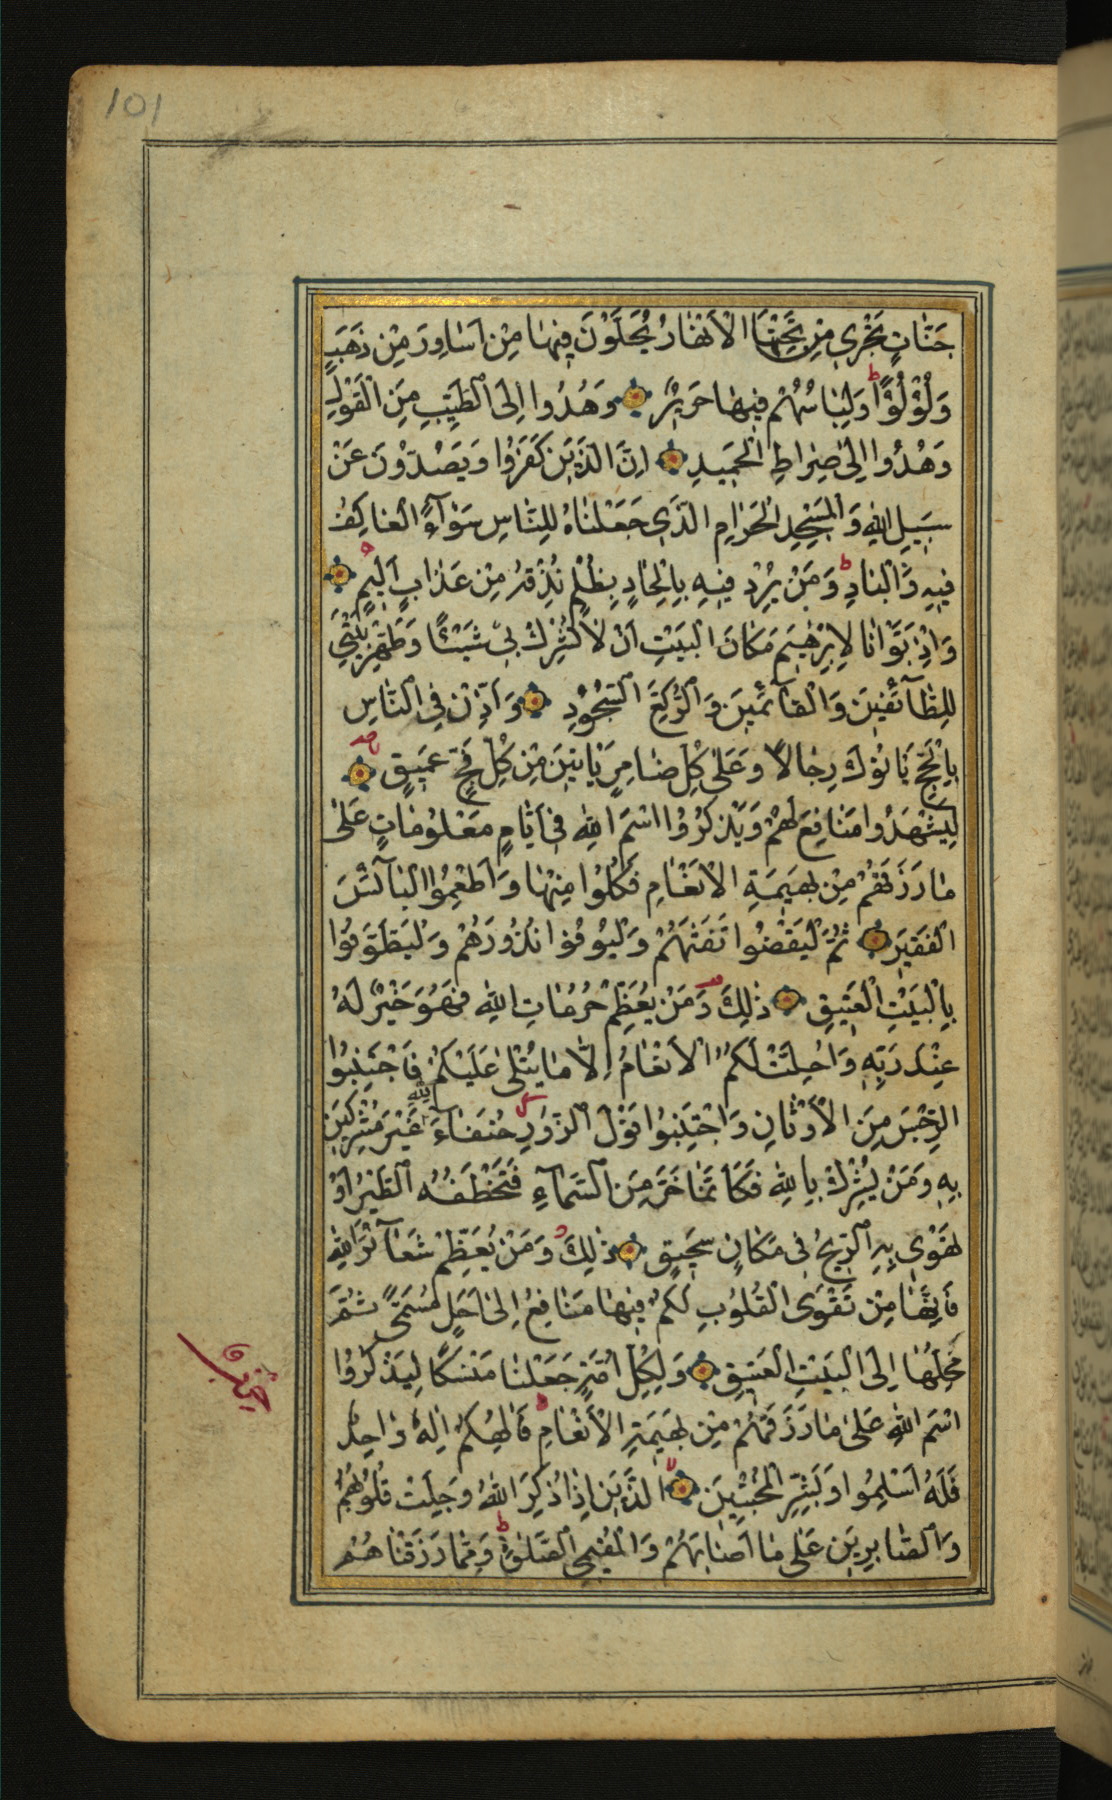 101
جَنَّاتٍ تَجْرِي مِنْ تَحْتِهَا الْأَنْهَارُ يُحَلَّوْنَ فِيهَا مِنْ أَسَاوِرَ مِنْ ذَهَبٍ
وَلُؤْلُؤًا وَلِبَاسُهُمْ فِيهَا حَرِيرٌ وَهُدُوا إِلَى الطَّيِّبِ مِنَ الْقَوْلِ
وَهُدُوا إِلَى صِرَاطِ الْحَمِيدِ إِنَّ الَّذِينَ كَفَرُوا وَيَصُدُّونَ عَنْ
سَبِيلِ اللهِ وَالْمَسْجِدِ الْحَرَامِ الَّذِي جَعَلْنَاهُ لِلنَّاسِ سَوَآءً الْعَاكِفُ
فِيهِ وَالْبَادِ وَمَنْ يُرِدْ فِيهِ بِإِلْحَادٍ بِظُلْمٍ نُذِقْهُ مِنْ عَذَابٍ أَلِيمٍ
وَإِذْ بَوَّأْنَا لِإِبْرٰهِيمَ مَكَانَ الْبَيْتِ أَنْ لَا تُشْرِكْ بِي شَيْئًا وَطَهِّرْ بَيْتِيَ
لِلطَّآئِفِينَ وَالْقَآئِمِينَ وَالرُّكَّعِ السُّجُودِ وَأَذِّنْ فِي النَّاسِ
بِالْحَجِّ يَأْتُوكَ رِجَالًا وَعَلَى كُلِّ ضَامِرٍ يَأْتِينَ مِنْ كُلِّ فَجٍّ عَمِيقٍ
لِيَشْهَدُوا مَنَافِعَ لَهُمْ وَيَذْكُرُوا اسْمَ اللهِ فِي أَيَّامٍ مَعْلُومَاتٍ عَلَى
مَا رَزَقَهُمْ مِنْ بَهِيمَةِ الْأَنْعَامِ فَكُلُوا مِنْهَا وَأَطْعِمُوا الْبَآئِسَ
الْفَقِيرَ ثُمَّ لْيَقْضُوا تَفَثَهُمْ وَلْيُوفُوا نُذُورَهُمْ وَلْيَطَّوَّفُوا
بِالْبَيْتِ الْعَتِيقِ ذٰلِكَ وَمَنْ يُعَظِّمْ حُرُمَاتِ اللهِ فَهُوَ خَيْرٌ لَهُ
عِنْدَ رَبِّهِ وَأُحِلَّتْ لَكُمُ الْأَنْعَامُ إِلَّا مَا يُتْلَى عَلَيْكُمْ فَاجْتَنِبُوا
الرِّجْسَ مِنَ الْأَوْثَانِ وَاجْتَنِبُوا قَوْلَ الزُّورِ حُنَفَاءَ لِلّٰهِ غَيْرَ مُشْرِكِينَ
بِهِ وَمَنْ يُشْرِكْ بِاللهِ فَكَأَنَّمَا خَرَّ مِنَ السَّمَآءِ فَتَخْطَفُهُ الطَّيْرُ أَوْ
تَهْوِي بِهِ الرِّيحُ فِي مَكَانٍ سَحِيقٍ ذٰلِكَ وَمَنْ يُعَظِّمْ شَعَآئِرَ اللهِ
فَإِنَّهَا مِنْ تَقْوَى الْقُلُوبِ لَكُمْ فِيهَا مَنَافِعُ إِلَى أَجَلٍ مُسَمًّى ثُمَّ
مَحِلُّهَا إِلَى الْبَيْتِ الْعَتِيقِ وَلِكُلِّ أُمَّةٍ جَعَلْنَا مَنْسَكًا لِيَذْكُرُوا
اسْمَ اللهِ عَلَى مَا رَزَقَهُمْ مِنْ بَهِيمَةِ الْأَنْعَامِ فَإِلٰهُكُمْ إِلٰهٌ وَاحِدٌ
فَلَهُ أَسْلِمُوا وَبَشِّرِ الْمُخْبِتِينَ الَّذِينَ إِذَا ذُكِرَ اللهُ وَجِلَتْ قُلُوبُهُمْ
وَالصَّابِرِينَ عَلَى مَا أَصَابَهُمْ وَالْمُقِيمِي الصَّلٰوةِ وَمِمَّا رَزَقْنَاهُمْ